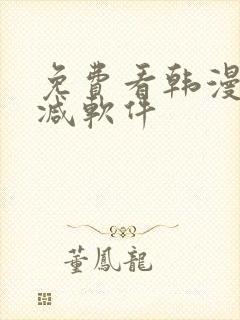 免費看韩漫
减軟件
董鳳龍